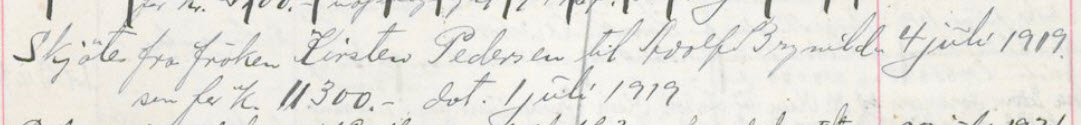 Skjøte fra frøken Kirsten Pedersen til Adolf Brynild- 4 juli 1919.
sen for K. 11300.- dat. 1 juli 1919